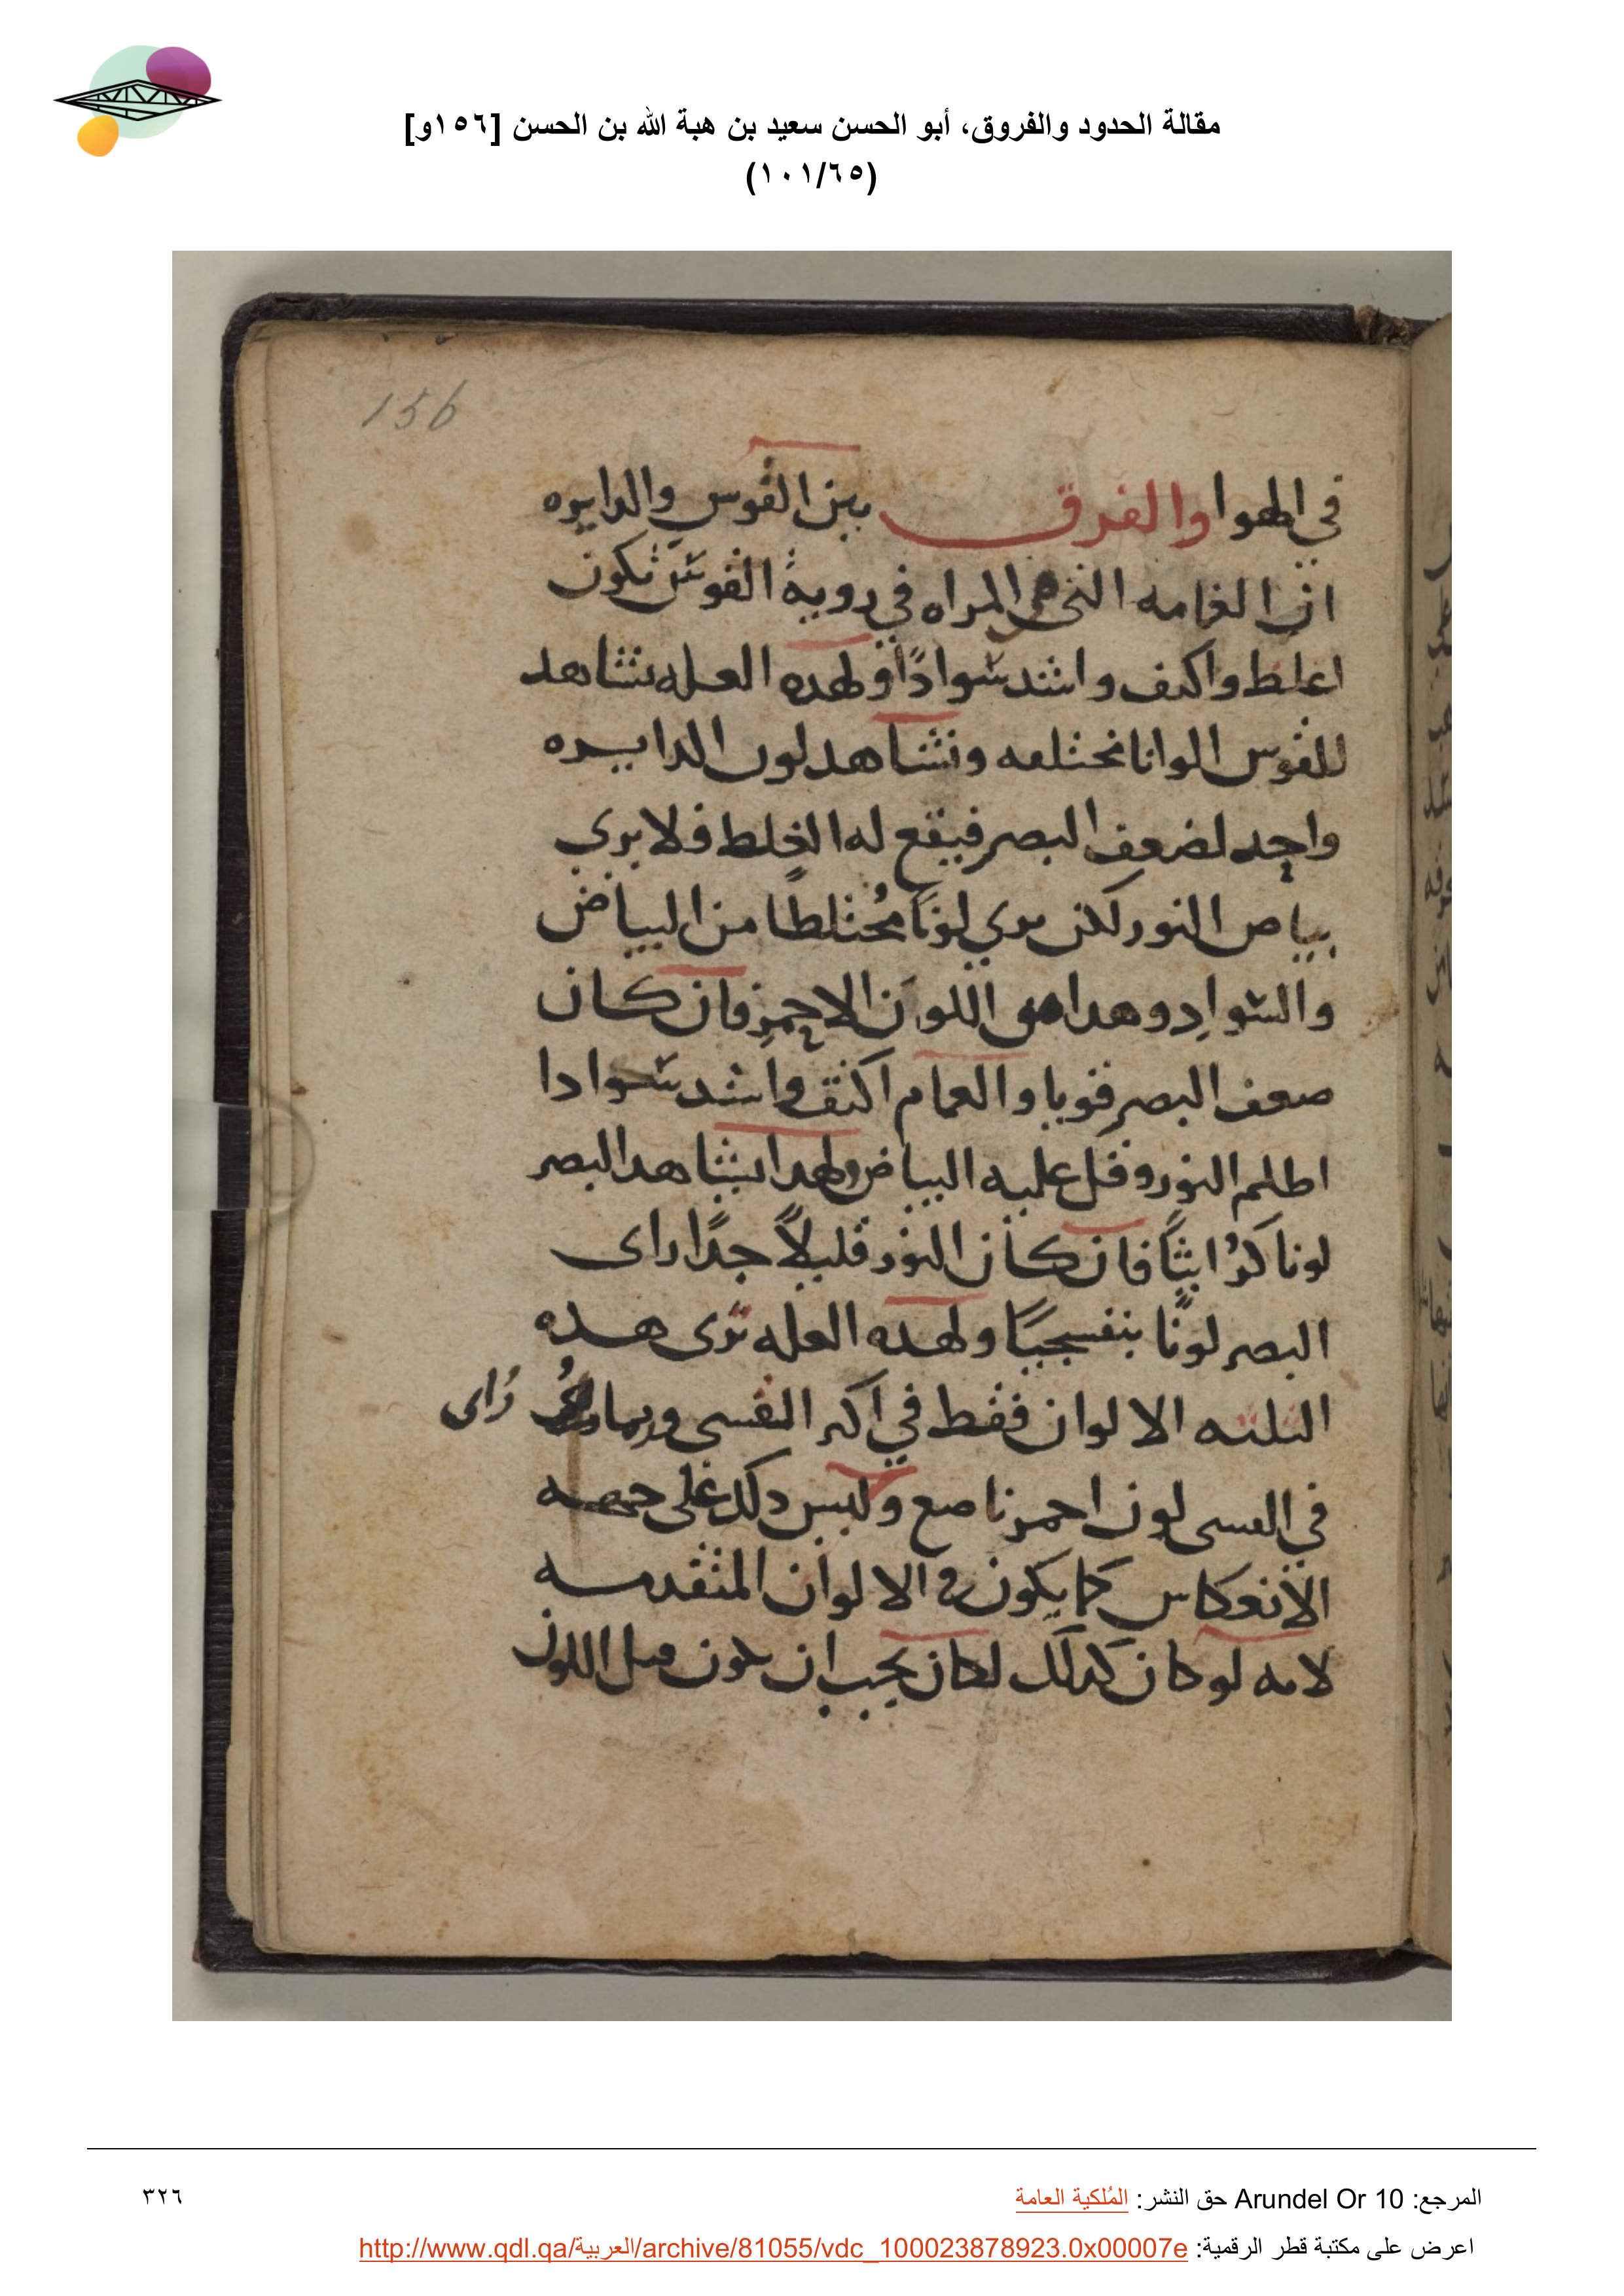 مقالة الحدود والفروق، أبو الحسن سعيد بن هبة الله بن الحسن [١٥٦و]
(١٠١/٦٥)
156
في الهوا والفرق بين القوس والدايره
ان الغامه التي هي المراه في روية القوس تكون
اغلظ واكثف واشد سوادًا ولهده العله نشاهد
للقوس الوانا مختلفه ونشاهد لون الدايره
واحد لضعف البصر فيقع له الخلط فلا يرى
بياض النور لكن يري لونًا مُختلطًا من البياض
والسواد وهدا هو اللون الاحمر فان كان
ضعف البصر قويا والغمام اكثف واشد سوادا
اظلم النور وقل عليه البياض ولهدا يشاهد البصر
لونا كرُاثيًا فان كان النور قليلاً جدًا راى
البصر لونًا بنفسجيًا ولهده العله ترى هده
الثلثه الالوان فقط في اكثر القسى وربما رُاى
في القسى لون احمر ناصع وليس دلك على جهه
الانعكاس كما يكون في الالوان المتقدمه
لانه لو كان كدلك لكان يجب ان يكون قبل اللون
المرجع: Arundel Or 10 حق النشر: المُلكية العامة
٣٢٦
اعرض على مكتبة قطر الرقمية: http://www.qdl.qa/العربية/archive/81055/vdc_100023878923.0x00007e